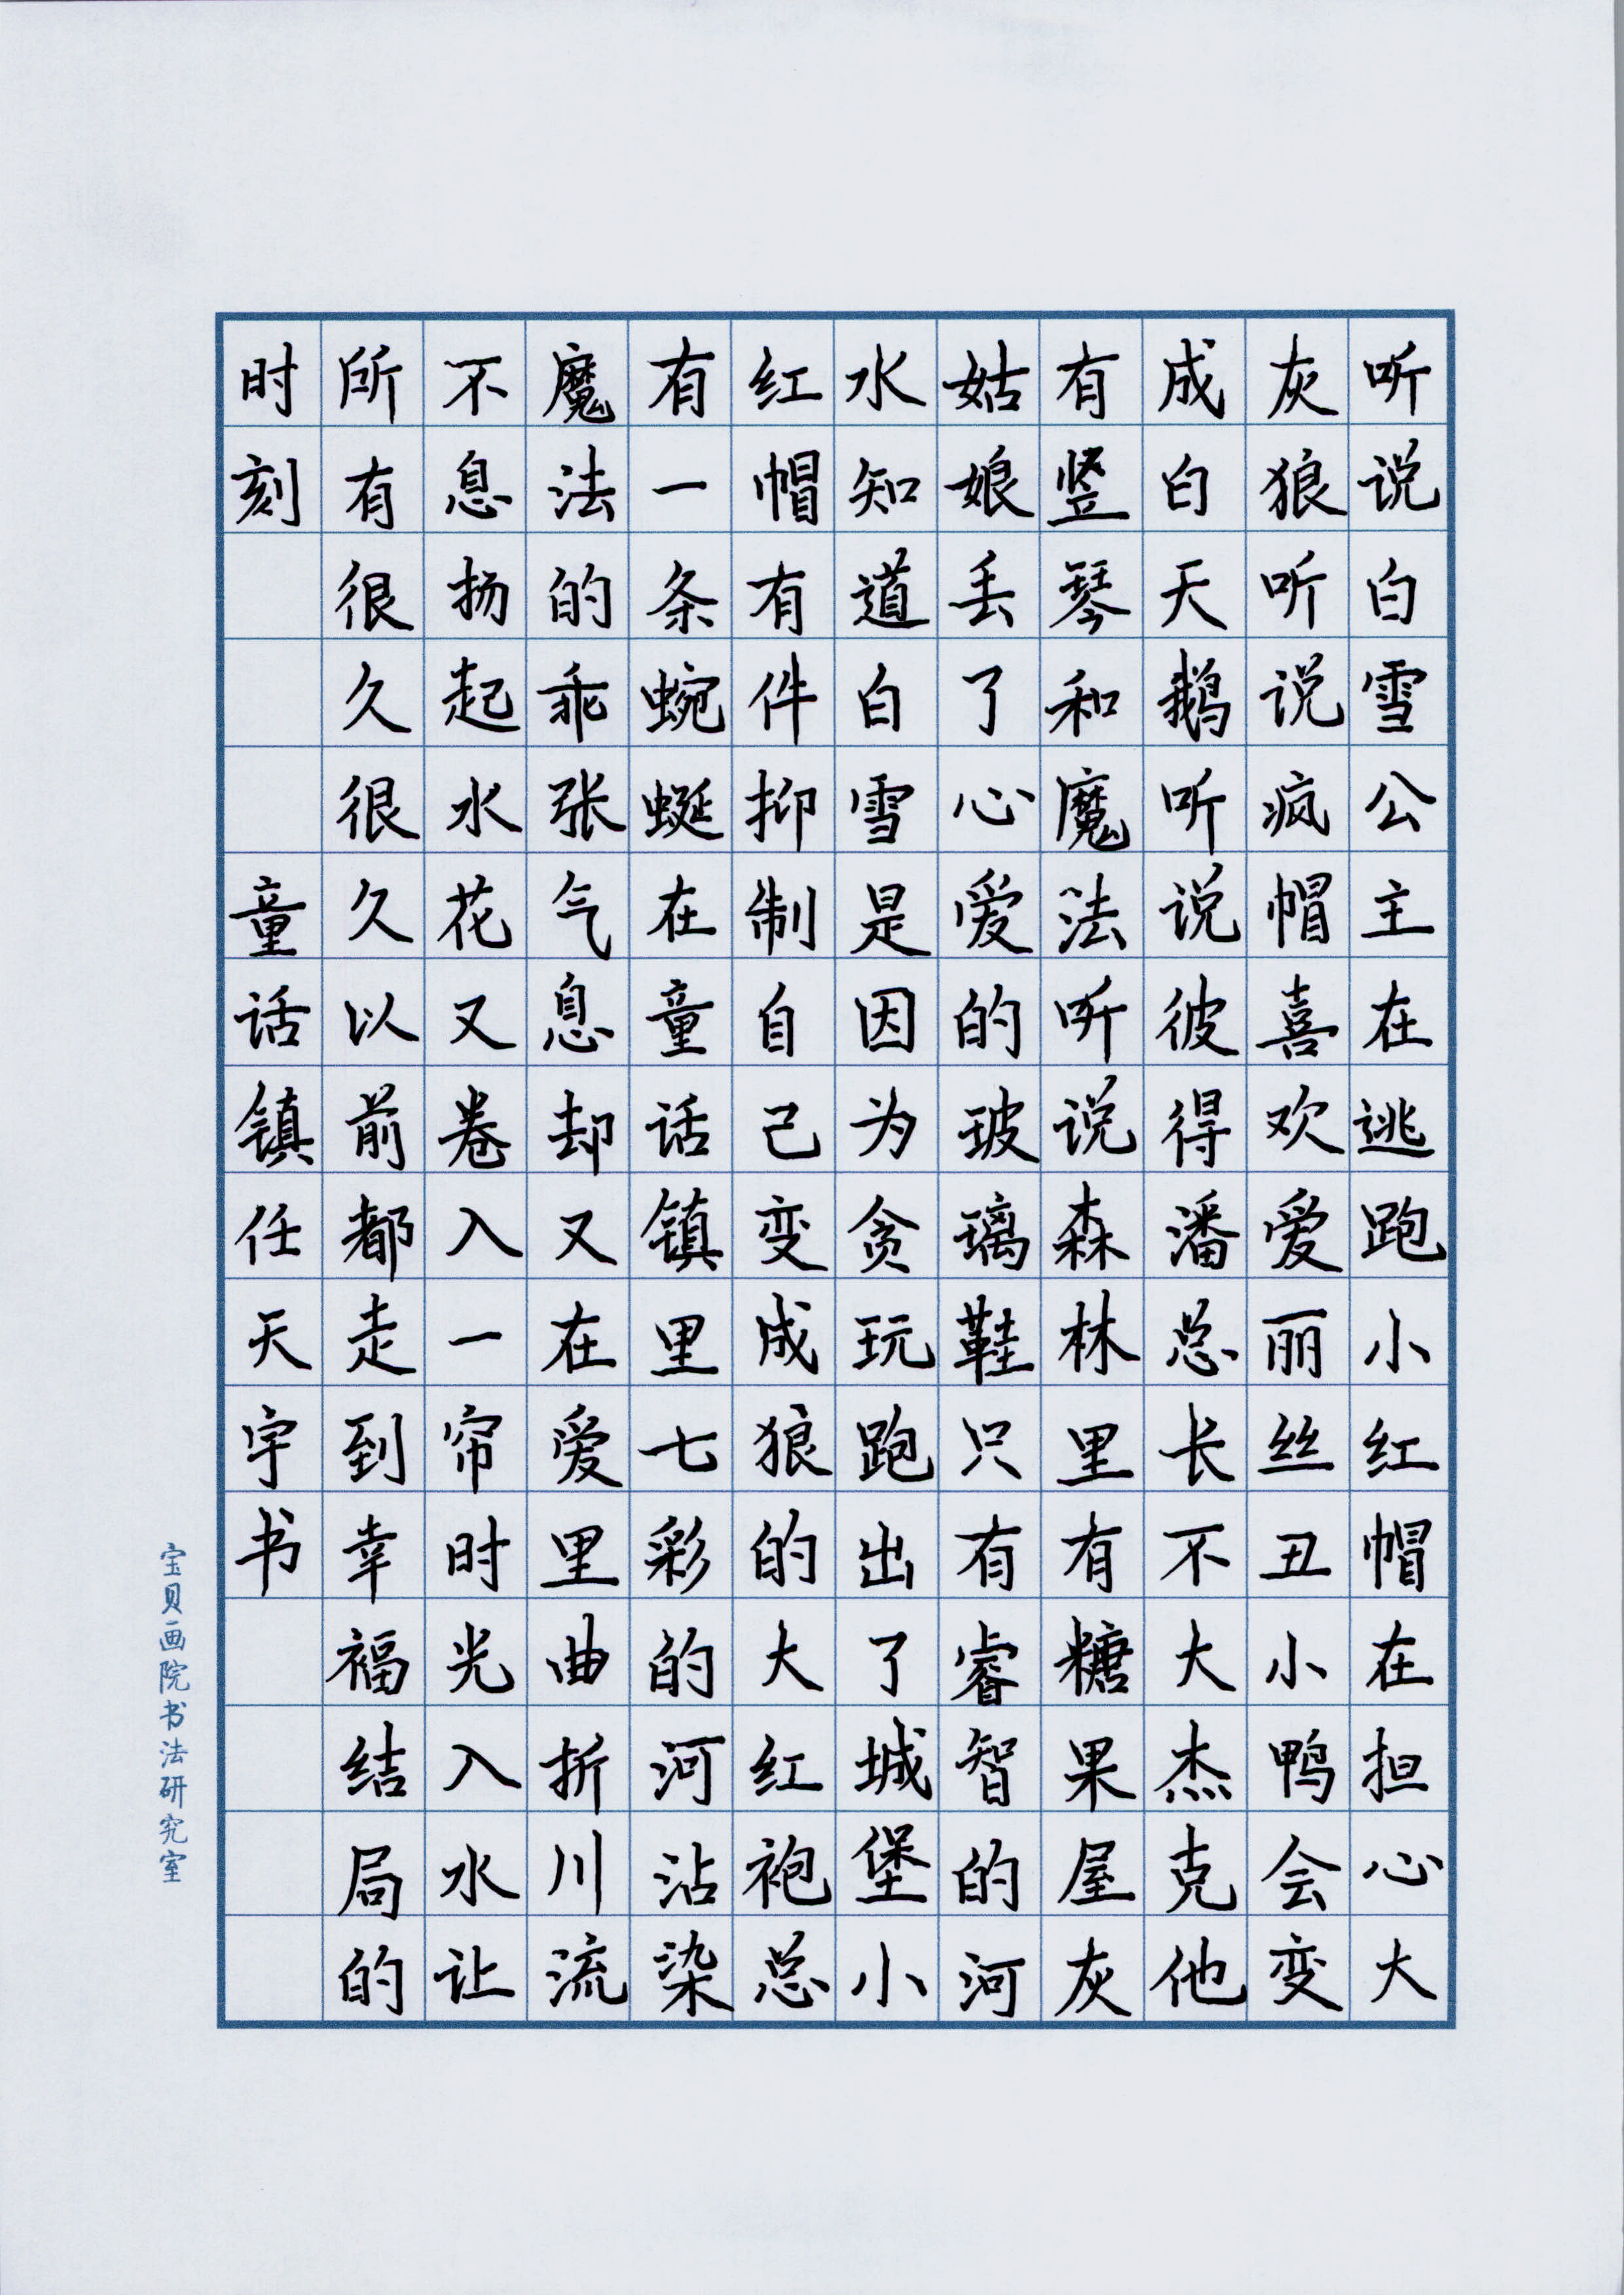 听说白雪公主在逃跑小红帽在担心大
灰狼听说疯帽喜欢爱丽丝丑小鸭会变
成白天鹅听说彼得潘总长不大杰克他
有竖琴和魔法听说森林里有糖果屋灰
姑娘丢了心爱的玻璃鞋只有睿智的河
水知道白雪是因为贪玩跑出了城堡小
红帽有件抑制自己变成狼的大红袍总
有一条蜿蜒在童话镇里七彩的河沾染
魔法的乖张气息却又在爱里曲折川流
不息扬起水花又卷入一帘时光入水让
所有很久很久以前都走到幸福结局的
时刻 童话镇任天宇书
宝贝画院书法研究室